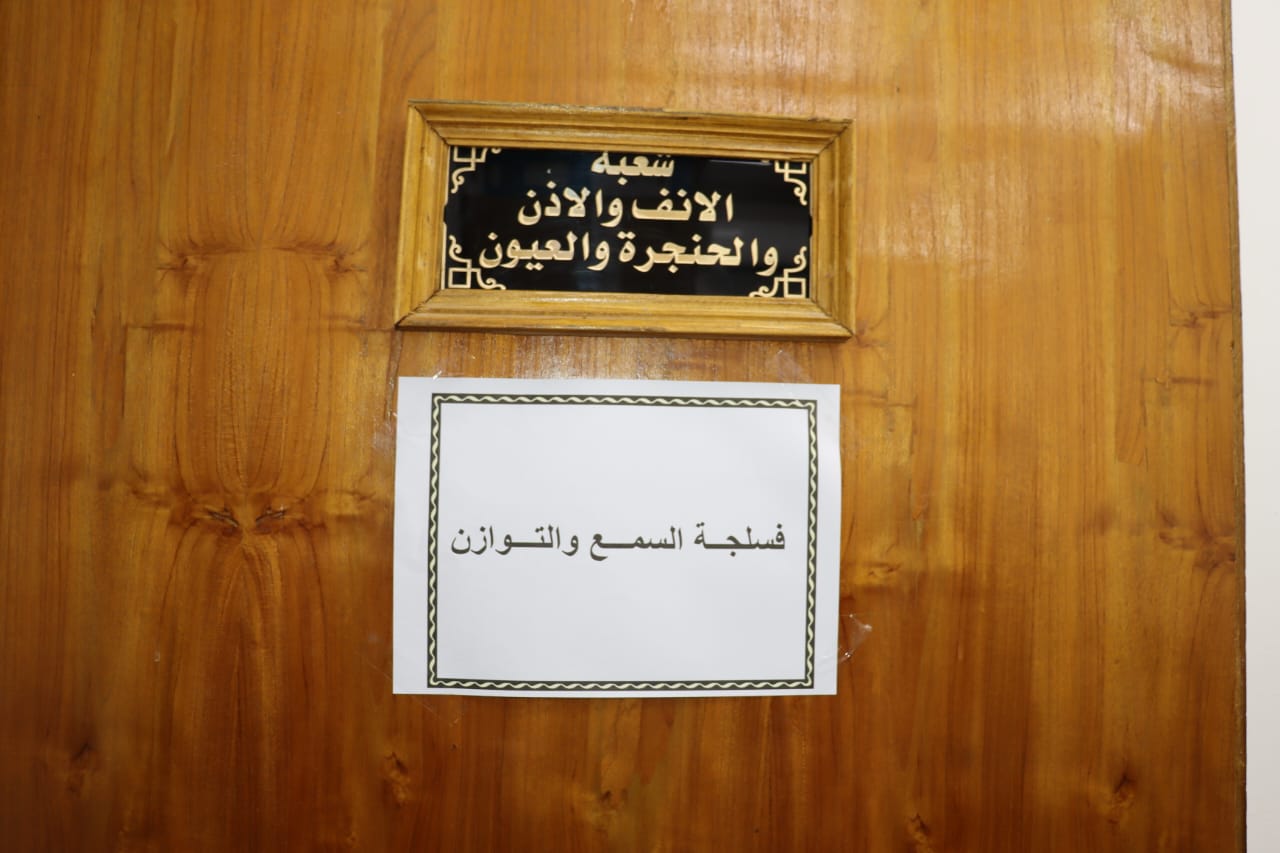 شعبة
الانف والاذن
والحنجرة والعيون
فسلجة السمع والتوازن